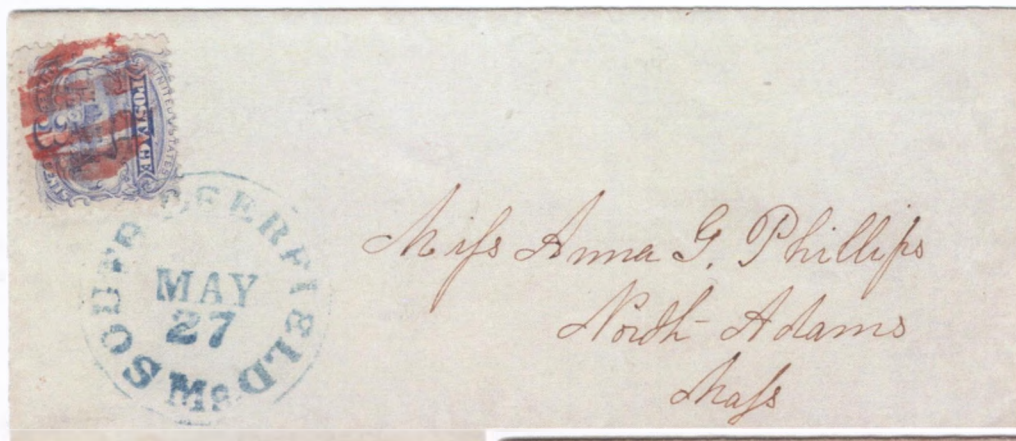 UNITED STATES
POSTAGE
3
SOUTH DEERFIELD Ms
MAY
27
Miſs Anna G. Phillips
North Adams
Maſs